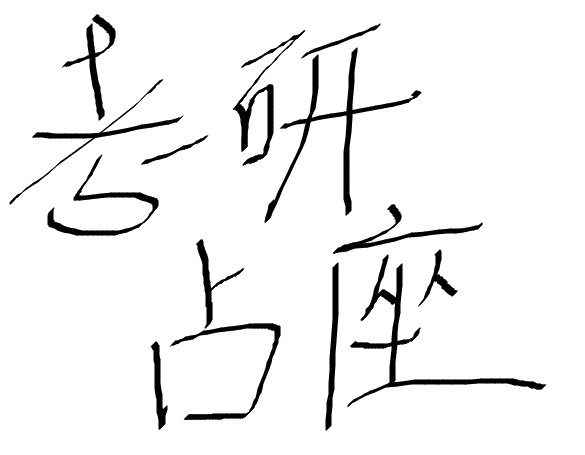 考研
占座